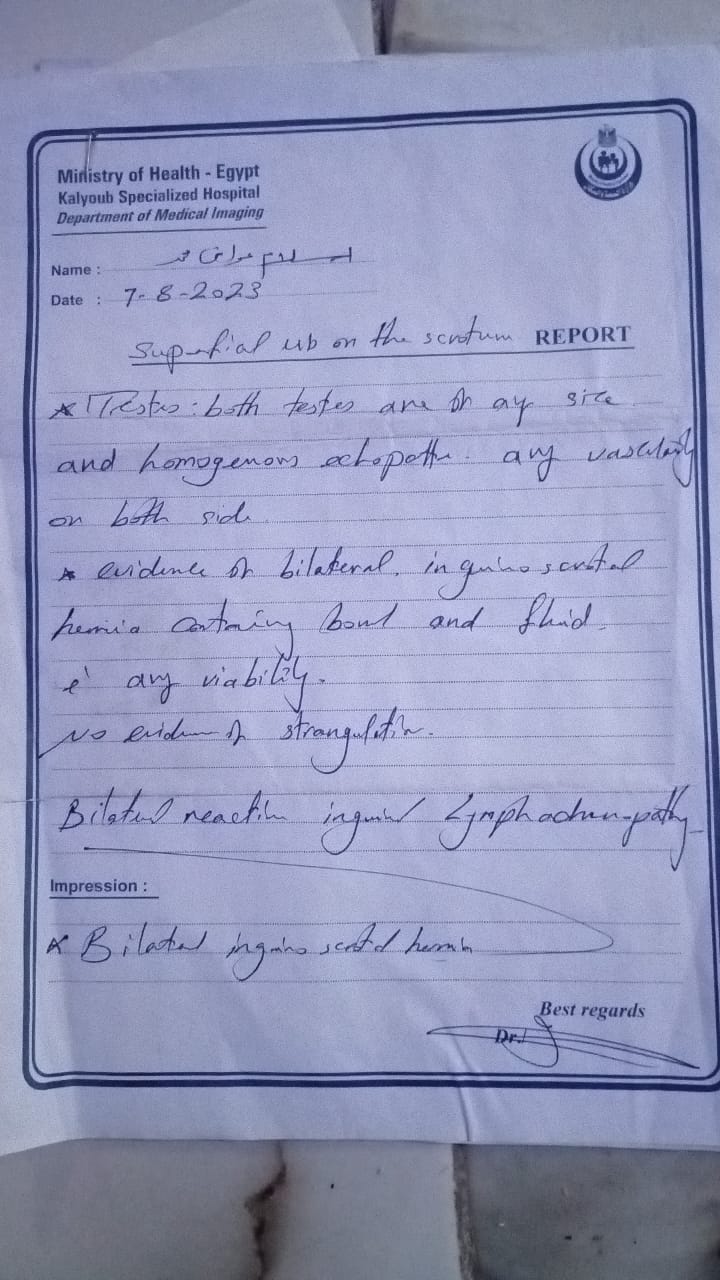 Ministry of Health - Egypt
Kalyoub Specialized Hospital
Department of Medical Imaging
Name : اسلام
Date : 7-8-2023
Superfial us on the scrotum REPORT
* Testes: both testes are of av size
and homogenous echopatte. av vascularity
on both side
* evidence of bilateral. inguino scrotal
hernia containing bowl and fluid.
c̄ av viability.
No eviden of strangulation.
Bilateral reactive inguinal Lymphadenopathy
Impression :
* Bilateral inguino scrotal hernia
Best regards
Dr.